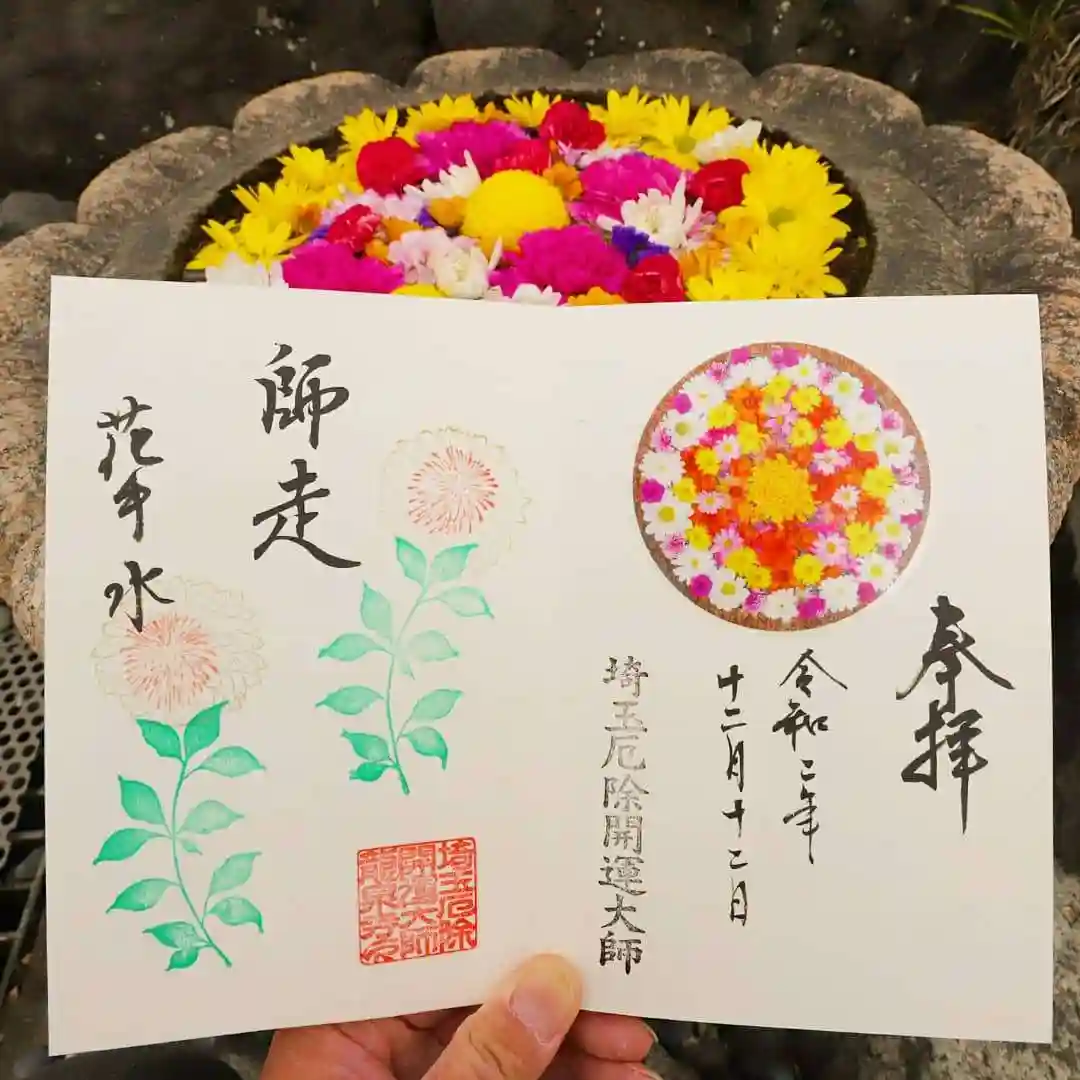 奉拝
令和二年
十二月十二日
埼玉厄除開運大師
師走
花手水
埼玉厄除
開運大師
龍泉寺印